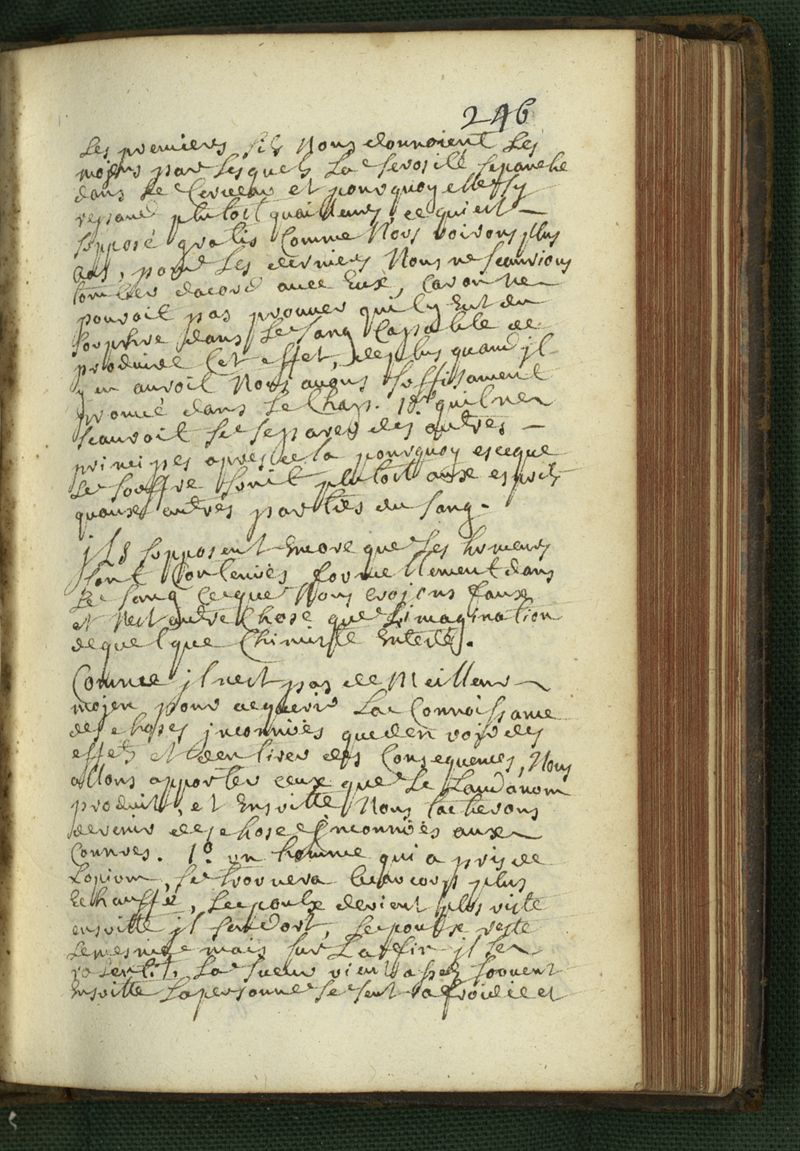 246
Les premiers s'ils Nous donnoient Les
mojens par Lesquels La Serosité Sepanche
dans Le Cerveau et pourquoy elle sy
repand plutoit quailleurs, cequi est
Supposé gratis Comme Nous voirons plus
bas, pour Les derniers Nous ne Scaurions
tomber dacord avec Eux, Car on Ne
pouroit pas prouver quil y Eut du
souphre dans Le Sang Capable de
produire Cet effet, deplus quand jl
y en auroit Nous avons suffisament
prouvé dans Le Chap. 18e quil ne
Scauroit se Separer des autres
principes apres cela pourquoy esceque
Le Souffre suit plutoit aux esprits
quaux autres parties du Sang.
jls supposent Encore que Les humeurs
sont Contenües formellement dans
Le Sang Ceque Nous croions faux
et Nest autre Chose que Limagination
dequelque Chimiste Entesté.
Comme jl nest pas de Meilleur
mojen pour acquerir La Connoissance
des choses jnconnües que den voir des
effets et den tirer des Consequences, Nous
allons apporter ceux que Le Laudanom
produit, et Ensuitte Nous tacherons
devenir des choses Jnconnües aux
Connues. 1o. un homme qui a pris de
Lopium, se trouvera beaucoup plus
Echauffé, Lepoulx devient plus viste
ensuitte jl sendort, Lepoulx reste
Lemesme mais sur La fin jl se
ralentit, La sueur vient assez souvent
Ensuitte La personne se sent rafroidie et